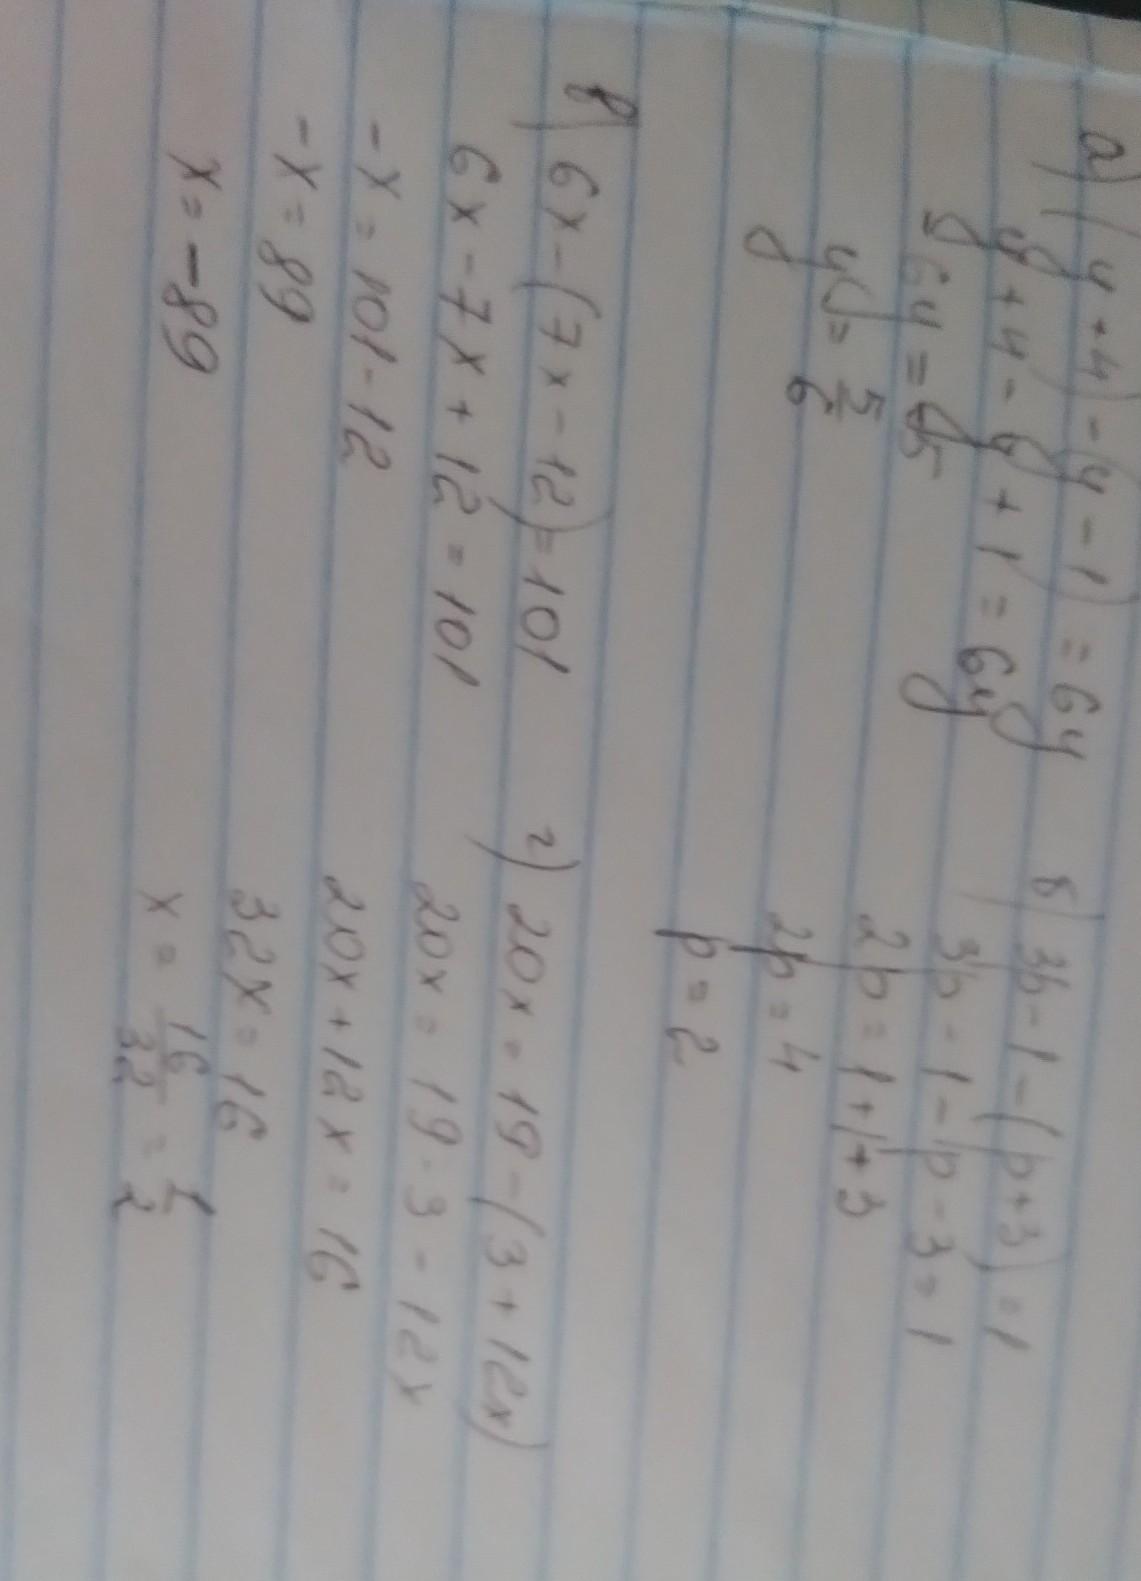 а) (y+4)-(y-1)=6y
y+4-y+1=6y
6y=5
y=5/6
б) 3p-1-(p+3)=1
3p-1-p-3=1
2p=1+1+3
2p=4
p=2
в) 6x-(7x-12)=101
6x-7x+12=101
-x=101-12
-x=89
x=-89
г) 20x=19-(3+12x)
20x=19-3-12x
20x+12x=16
32x=16
x=16/32=1/2